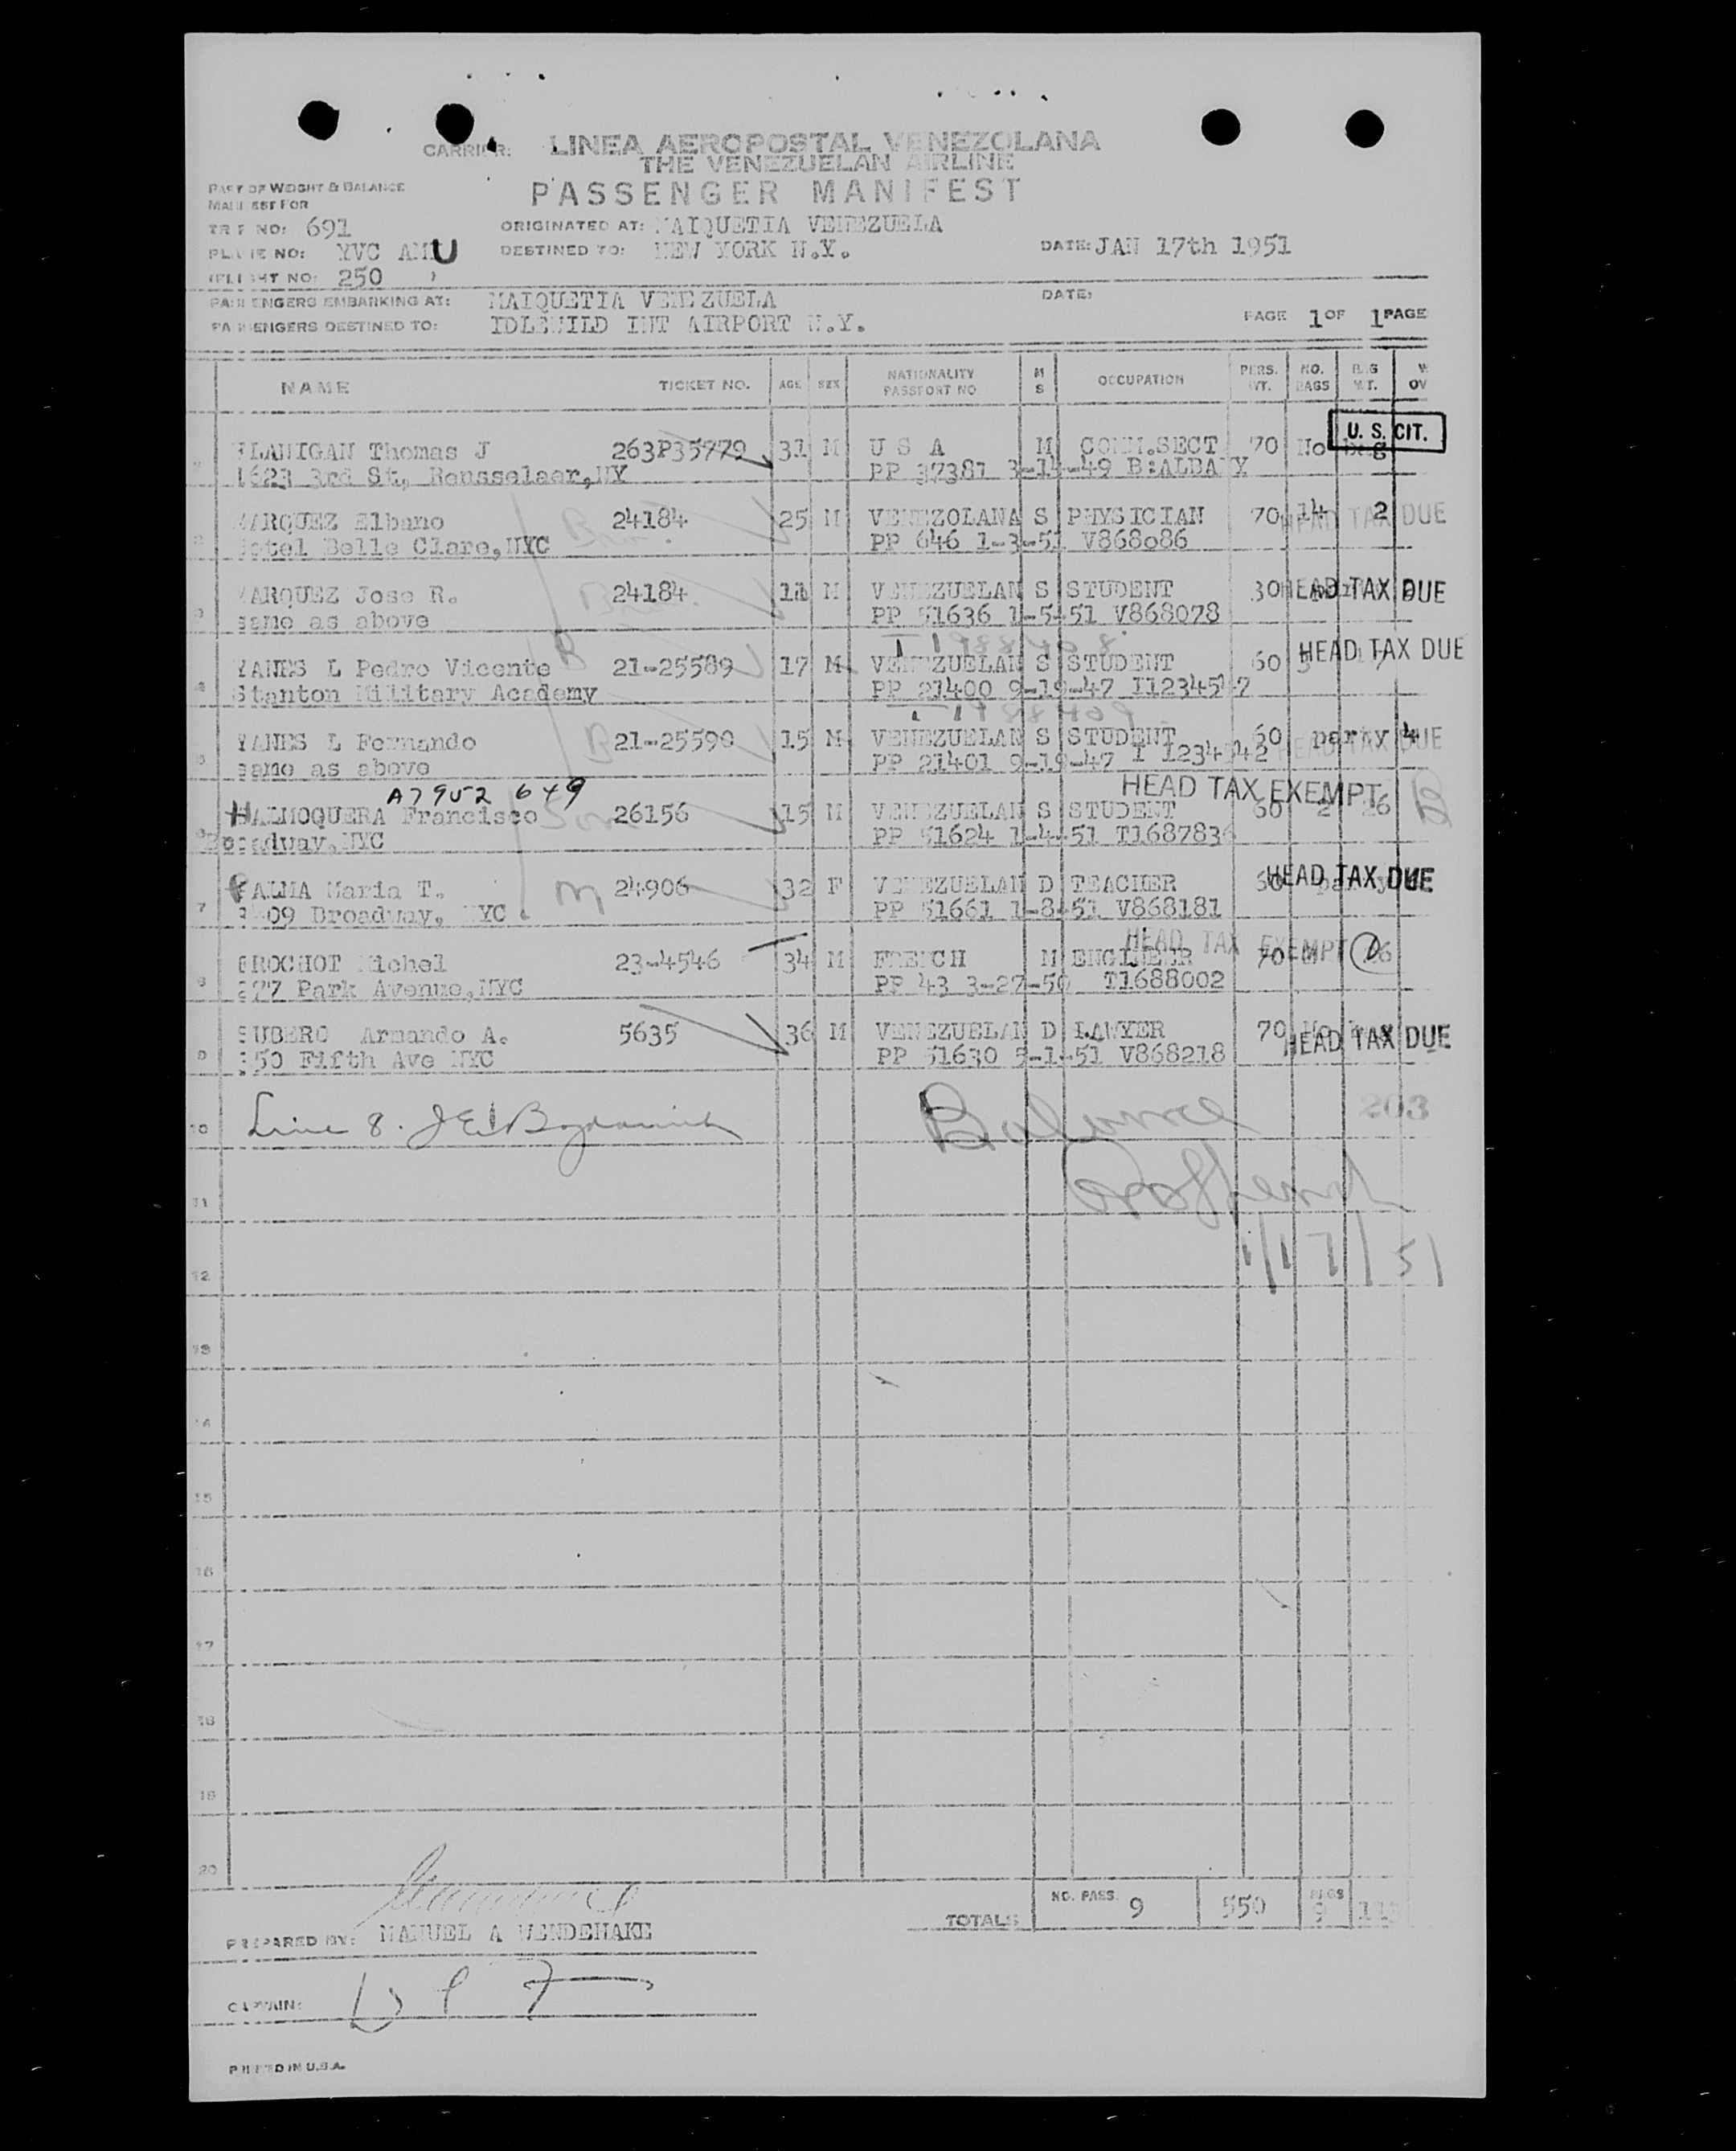 CARRIER: LINEA AEROPOSTAL VENEZOLANA
THE VENEZUELAN AIRLINE
PART OF WEIGHT & BALANCE
MANIFEST FOR
PASSENGER MANIFEST
TRIP NO: 691
ORIGINATED AT: MAIQUETIA VENEZUELA
PLANE NO: YVC AMU
DESTINED TO: NEW YORK N.Y.
DATE: JAN 17th 1951
(FLIGHT NO: 250 )
PASSENGERS EMBARKING AT: MAIQUETIA VENEZUELA
DATE:
PASSENGERS DESTINED TO: IDLEWILD INT AIRPORT N.Y.
PAGE 1 OF 1 PAGE
NAME TICKET NO. AGE SEX NATIONALITY PASSPORT NO M S OCCUPATION PERS. WT. NO. BAGS BAG WT. W OV
U. S. CIT.
FLANIGAN Thomas J 263P35779 31 M U S A M COMM.SECT 70 No bag
1623 3rd St, Rousselaer,NY PP 37381 3-14-49 B:ALBA Y
2 MARQUEZ Elbano 24184 25 M VENEZOLANA S PHYSICIAN 70 14 2 HEAD TAX DUE
Hotel Belle Clare,NYC PP 646 1-3-51 V868086
3 MARQUEZ Jose R. 24184 11 M VENEZUELAN S STUDENT 30 HEAD TAX DUE
same as above PP 51636 1-5-51 V868078
4 YANES L Pedro Vicente 21-25589 17 M VENEZUELAN S STUDENT 60 HEAD TAX DUE
Stanton Military Academy PP 21400 9-19-47
5 YANES L Fernando 21-25590 15 M VENEZUELAN S STUDENT 60 HEAD TAX DUE
same as above PP 21401 9-19-47
A7952 649
HEAD TAX EXEMPT
HALMOQUERA Francisco 26156 15 M VENEZUELAN S STUDENT 60 2 26
Broadway,NYC PP 51624 1-4-51 T1687836
7 PALMA Maria T. 24906 32 F VENEZUELAN D TEACHER HEAD TAX DUE
Broadway, NYC. PP 51661 1-8-51 V868181
HEAD TAX EXEMPT
8 BROCHOT Michel 23-4546 34 M FRENCH M ENGINEER 70
277 Park Avenue,NYC PP 43 3-27-50 T1688002
9 SUBERO Armando A. 5635 36 M VENEZUELAN D LAWYER 70 HEAD TAX DUE
350 Fifth Ave NYC PP 51630 5-1-51 V868218
10 Line 8.
11
12
13
14
15
16
17
18
19
20
TOTALS NO. PASS. 9 550 BAGS 9
PREPARED BY: MANUEL A WENDEHAKE
CAPTAIN:
PRINTED IN U.S.A.